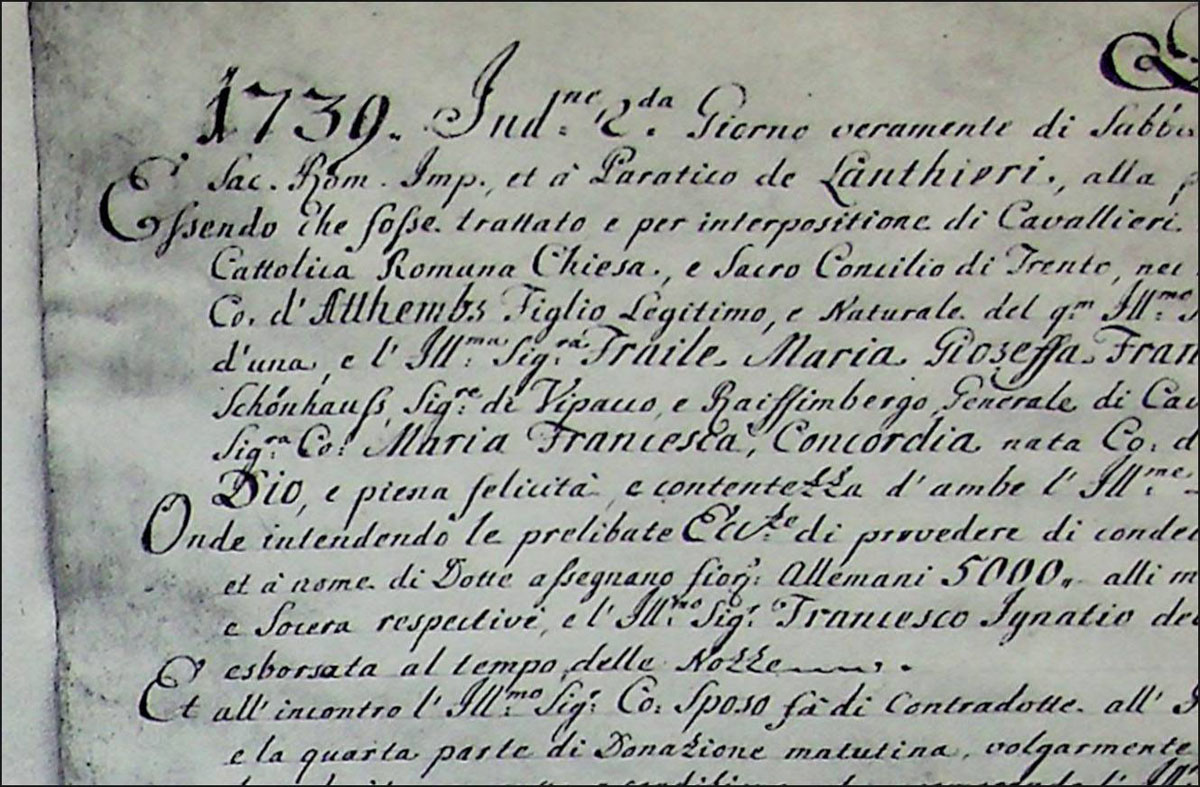 1739. Ind.ne 2.da Giorno veramente di Sabb
Sac. Rom. Imp., et à Paratico de Lanthieri., alla
Essendo che fosse trattato e per interpositione di Cavallieri
Cattolica Romana Chiesa., e Sacro Concilio di Trento, nei
Co. d'Atthembs Figlio Legitimo, e Naturale del q.m Ill.mo
d'una, e l'Ill.ma Sig.ra Fraile Maria Gioseffa Fran
Schönhauss, Sig.re di Vipacco, e Raiffimbergo, Generale di Cav
Sig.ra Co: Maria Francesca, Concordia nata Co. d
Dio, e piena felicità, e contentezza d'ambe l'Ill.me
Onde intendendo le prelibate Ecc.ze di provedere di conde
et à nome di Dotte assegnano fior: Allemani 5000,, alli
e Socera respective, e l'Ill.mo Sig.r Francesco Ignatio de
esborsata al tempo delle Nozze
Et all'incontro l'Ill.mo Sig.r Co: Sposo fà di Contradotte all'
e la quarta parte di Donazione matutina, volgarmente